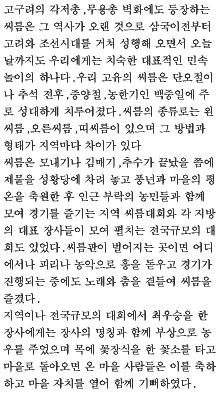 고구려의 각저총,무용총 벽화에도 등장하는
씨름은 그 역사가 오랜 것으로 삼국이전부터
고려와 조선시대를 거쳐 성행해 오면서 오늘
날까지도 우리에게는 치숙한 대표적인 민속
놀이의 하나다.우리 고유의 씨름은 단오절이
나 추석 전후,중양절,농한기인 백중일에 주
로 성대하게 치루어졌다.씨름의 종류로는 왼
씨름,오른씨름,띠씨름이 있으며 그 방법과
형태가 지역마다 차이가 있다
씨름은 모내기나 김매기,추수가 끝났을 쯤에
제물을 성황당에 차려 놓고 풍년과 마을의 평
온을 축원한 후 인근 부락의 농민들과 함께
모여 경기를 즐기는 지역 씨름대회와 각 지방
의 대표 장사들이 모여 펼치는 전국규모의 대
회도 있었다.씨름판이 벌어지는 곳이면 어디
에서나 피리나 농악으로 흥을 돋우고 경기가
진행되는 중에도 노래와 춤을 곁들여 씨름을
즐겼다.
지역이나 전국규모의 대회에서 최우승을 한
장사에게는 장사의 명칭과 함께 부상으로 농
우를 주었으며 목에 꽃장식을 한 꽃소를 타고
마을로 돌아오면 온 마을 사람들은 이를 축하
하고 마을 자치를 열어 함께 기뻐하였다.